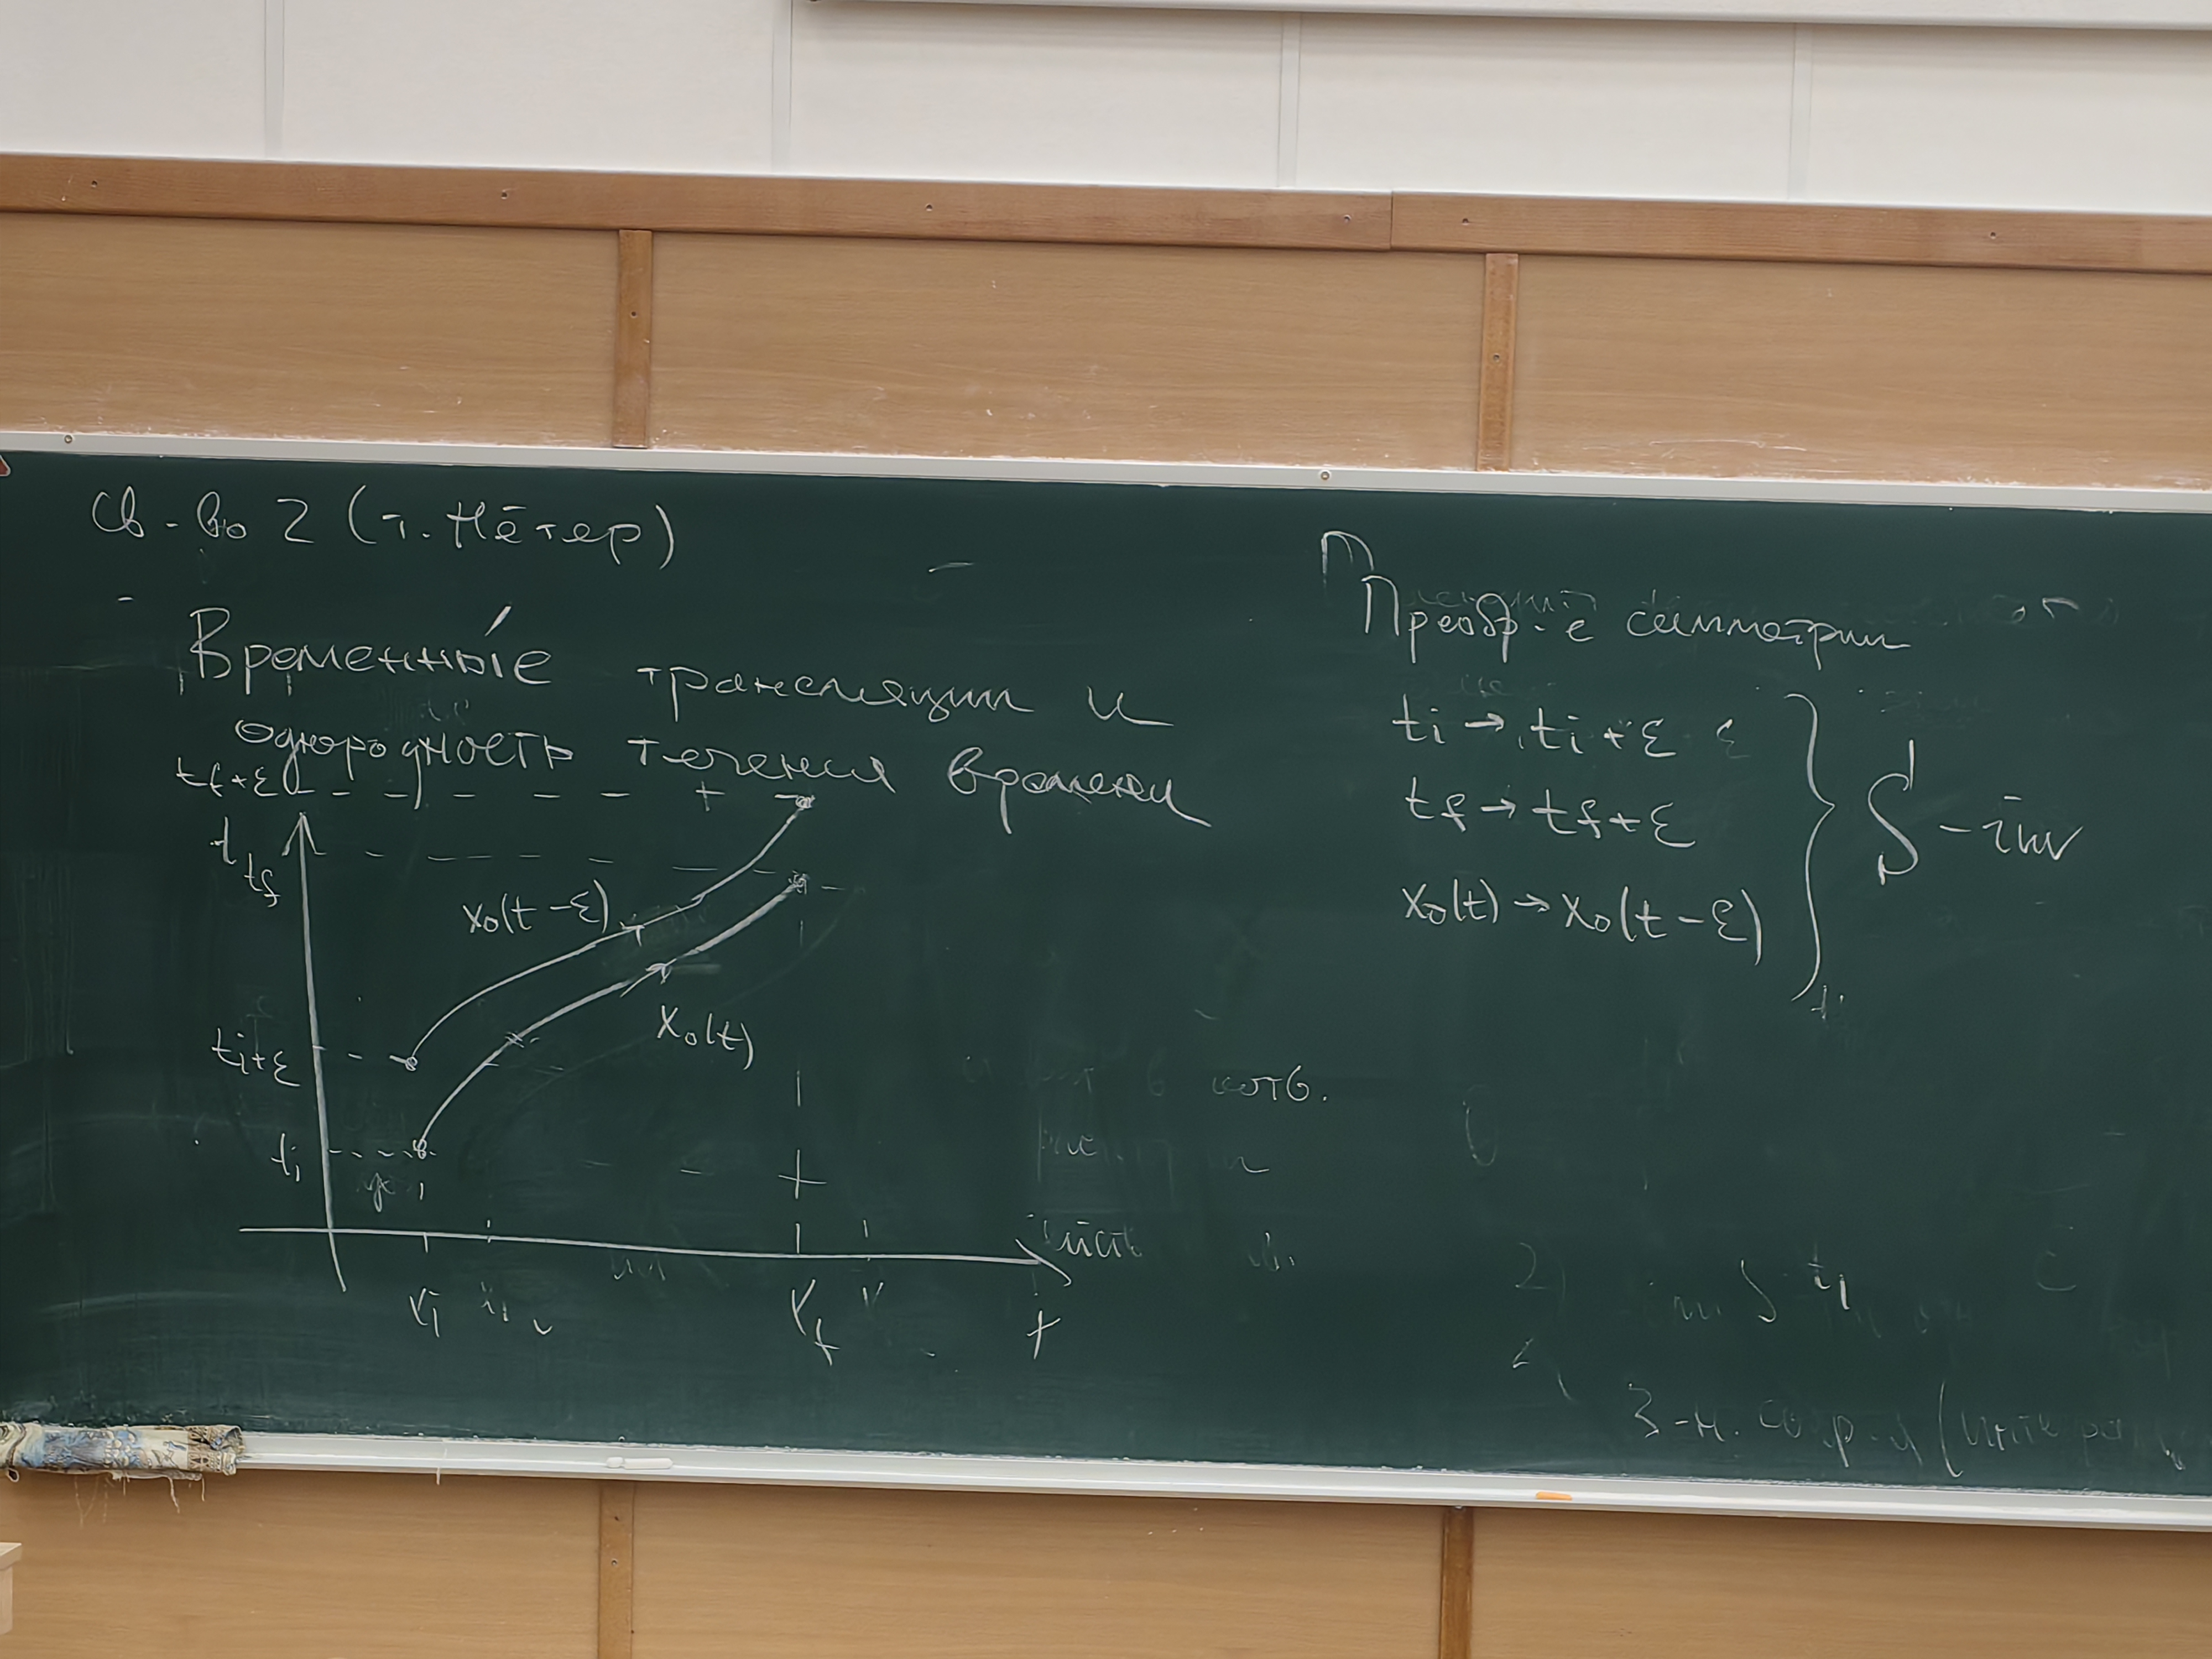 Св-во 2 (т. Нётер)
Временны́е трансляции и
однородность течения времени
tf+ε
t
tf
x₀(t-ε)
x₀(t)
ti+ε
ti
Преобр-е симметрии
ti → ti+ε
tf → tf+ε
x₀(t) → x₀(t-ε)
S - inv
З-н. сохр-я (